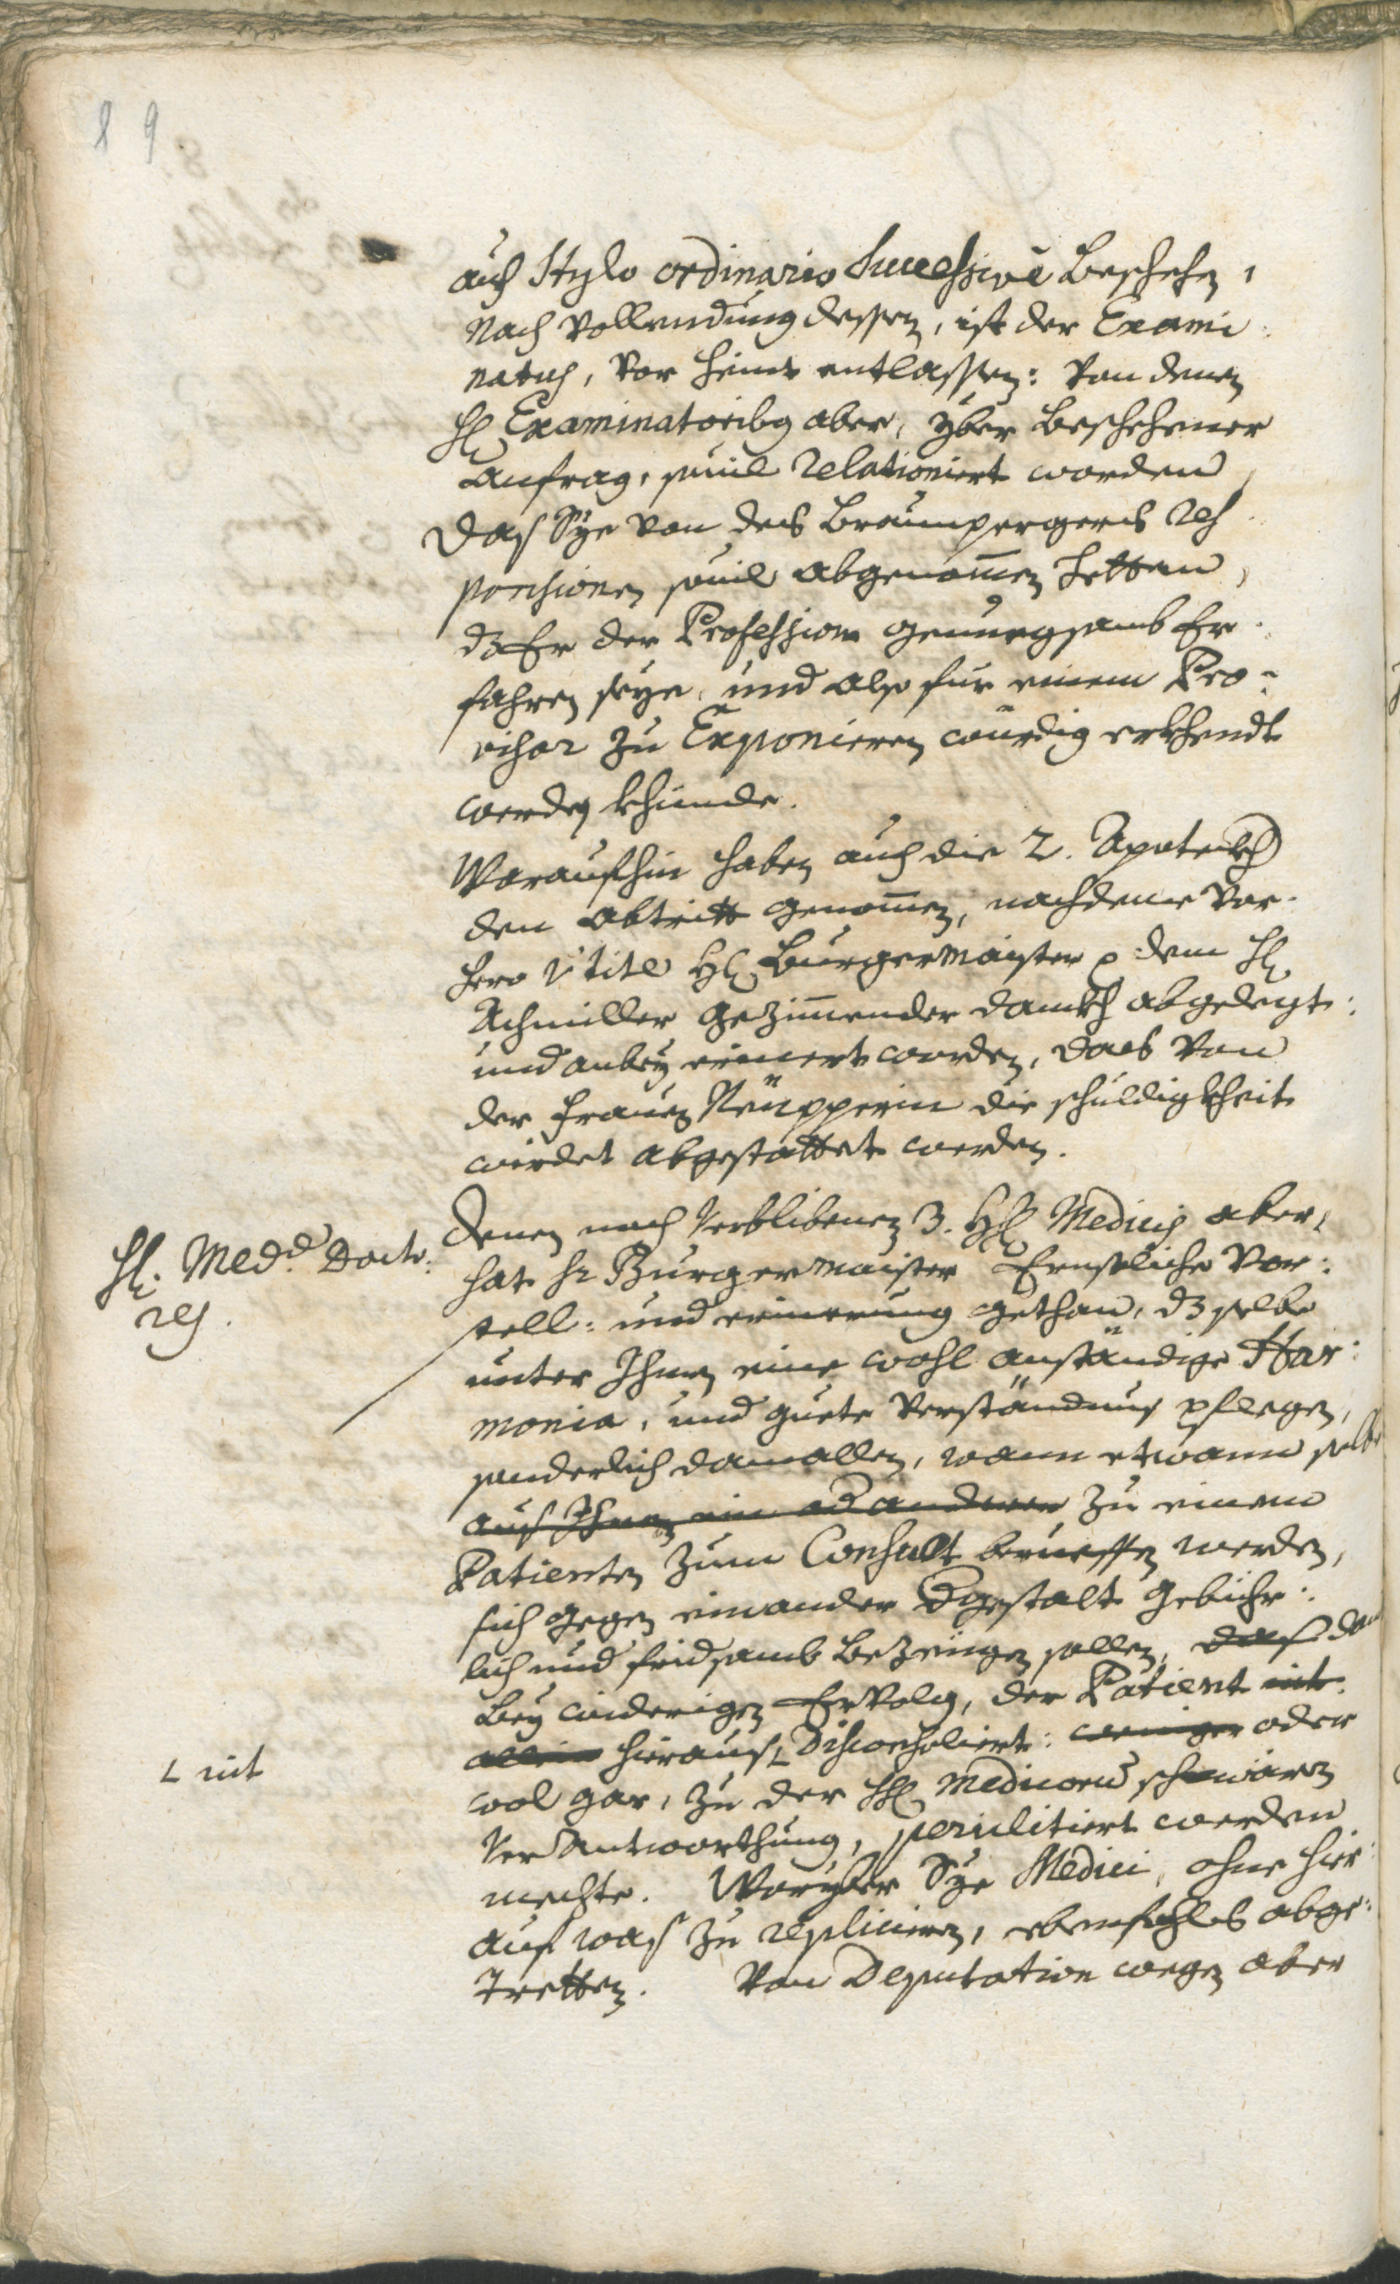 89
auch Stylo ordinario Successivè beschehen,
Nach Vollendung dessen, ist der Exami:
natus, vor heint entlassen: Von denen
H: Examinatoribus aber, yber beschehener
Anfrag, souil relationiert worden,
Das Sye von des Braunpergers res
ponsionen souil abgenom̄en hetten,
dz Er der Profession genuegsamb Er:
fahren seye, und also fur einem Pro:
visor zu Exponieren würdig erkhendt
werden khünde.
Woraufhin haben auch die 2. Apoteckh
den abtritt genom̄en, nachdeme vor:
hero titl H: Burgermaister p dem H:
Achmiller gezim̄ender danckh abgelegt:
und anbey erinert worden, das von
der frauen Neüpperin die schuldigkheit
wirdet abgestattet werden.
Denen noch verblibenen 3. H: Medicis aber,
H: Med: Doct:
res.
hat Hr Burgermaister Ernstliche Vor:
stell: und erinerung gethan, dz selbe
unter Ihnen eine wohl anständige Har:
monia, und guete verständnus pflegen,
sonderlich damallen, wann etwann selbe
auß Ihnen ein od anderer zu einem
Patienten zum Consult berueffen werden,
sich gegen einander dgestalt gebühr:
lich und fridsamb bezeügen sollen, daß da
bey widerigen Ervolg, der Patient nit
allein hierauß disconsoliert: weniger oder
L nit
wol gar, zu der H: Medicorum schwären
verantworthung, periclitiert werden
mechte. Woryber Sye Medici, ohne hier:
auf was zu replicieren, ebenfahls abge:
tretten. Von Deputation wegen aber